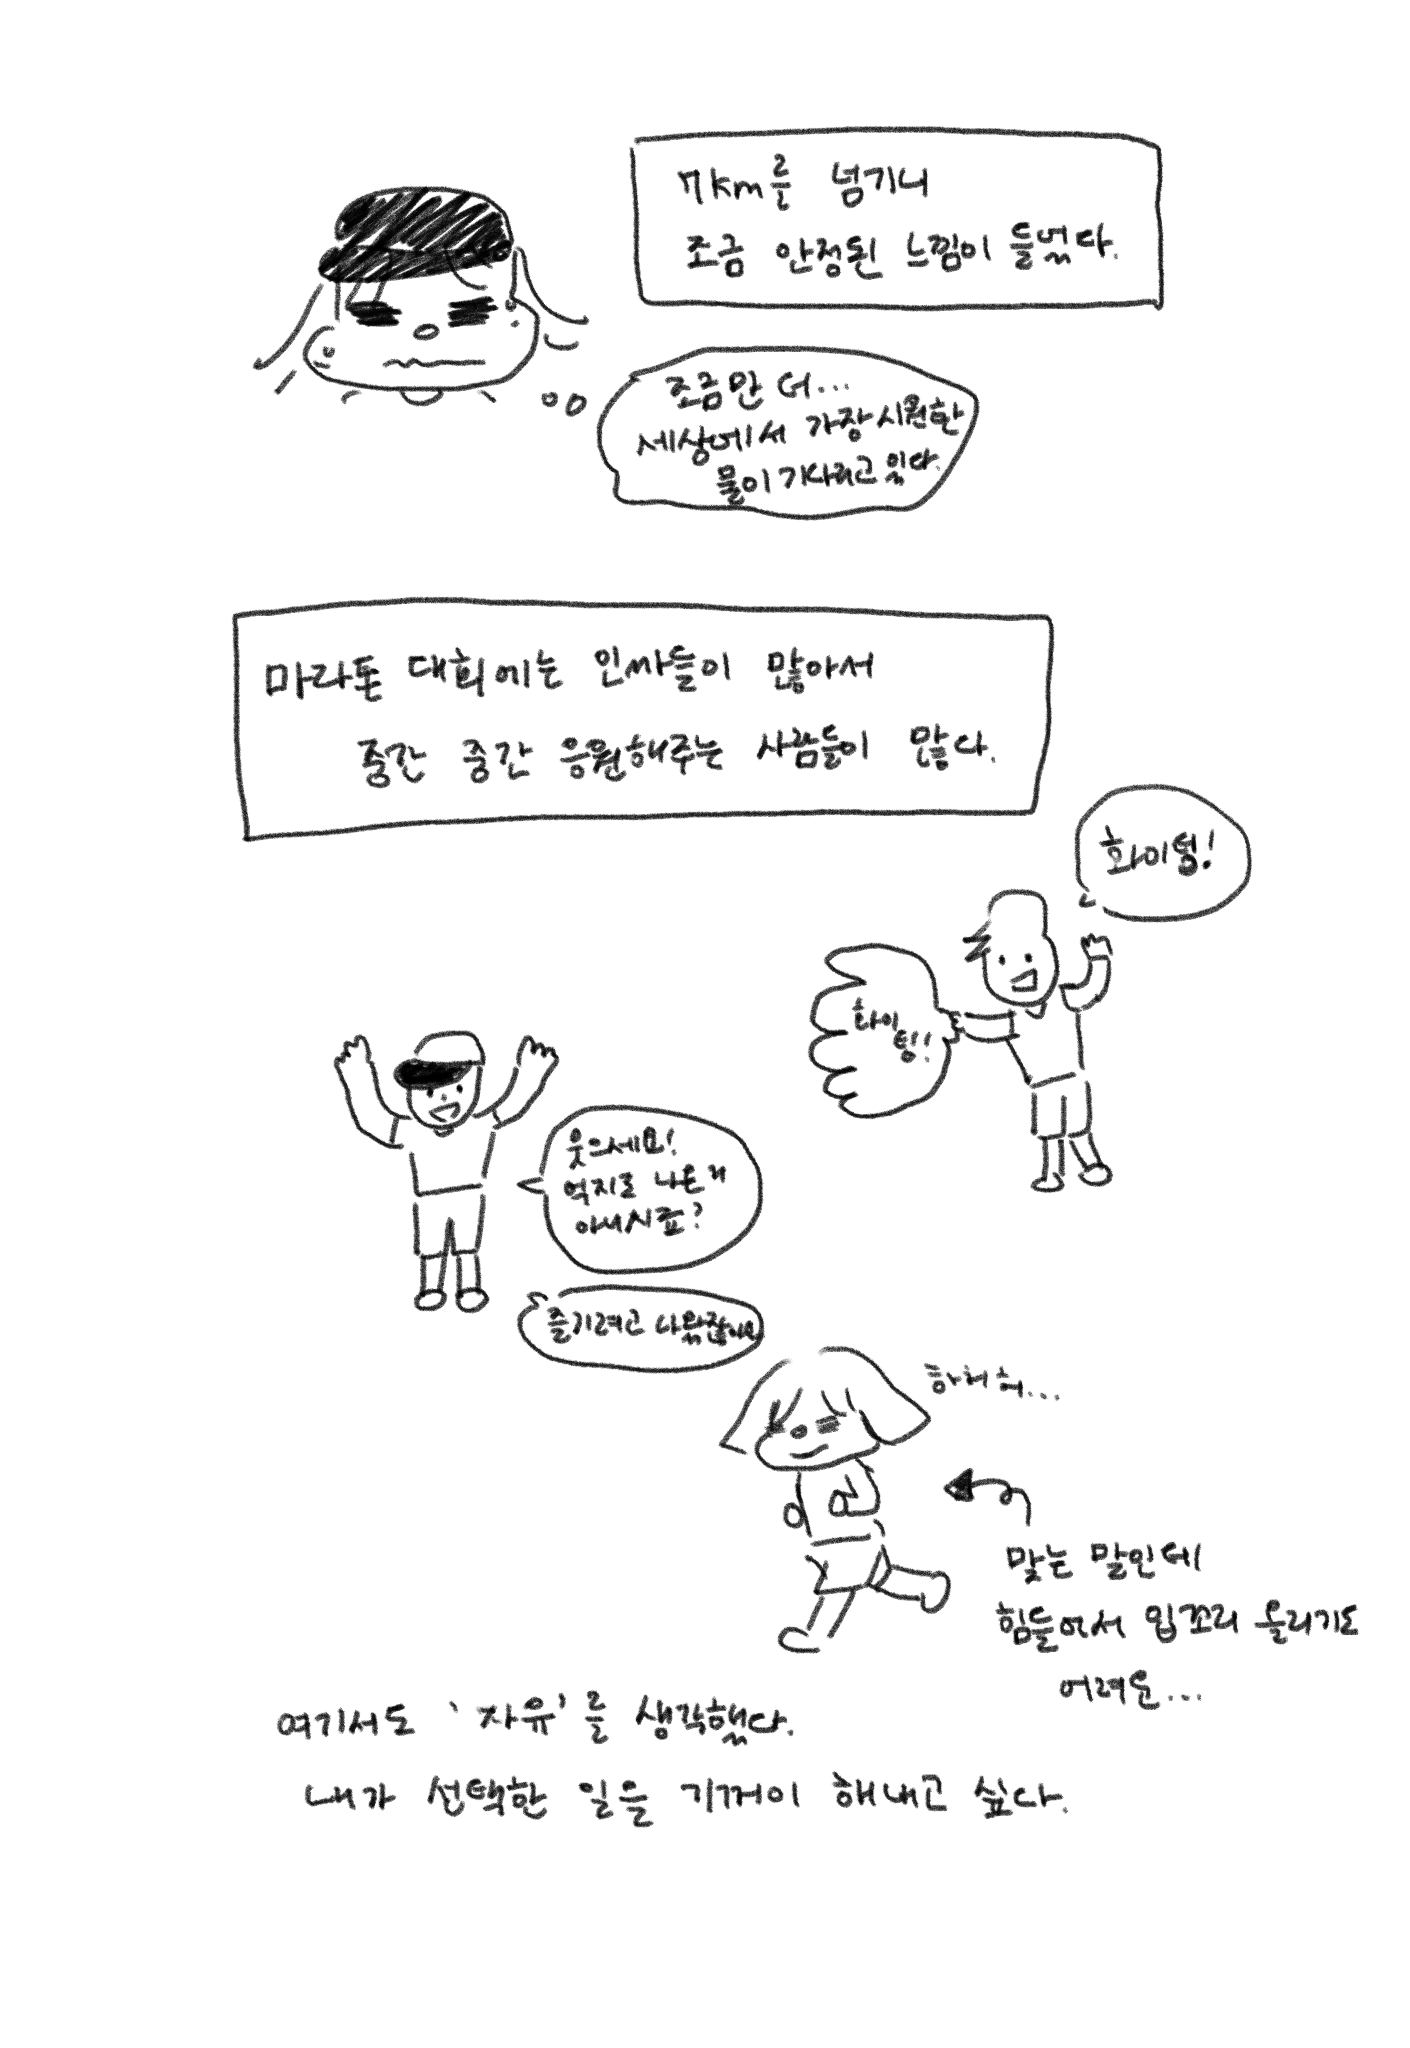 7km를 넘기니
조금 안정된 느낌이 들었다.
조금만 더...
세상에서 가장 시원한
물이 기다리고 있다.
마라톤 대회에는 인싸들이 많아서
중간 중간 응원해주는 사람들이 많다.
화이팅!
화이
팅!!
웃으세요!
억지로 나온거
아니시죠?
즐기려고 나왔잖아요
하허허...
맞는 말인데
힘들어서 입꼬리 올리기도
어려운...
여기서도 '자유'를 생각했다.
내가 선택한 일을 기꺼이 해내고 싶다.